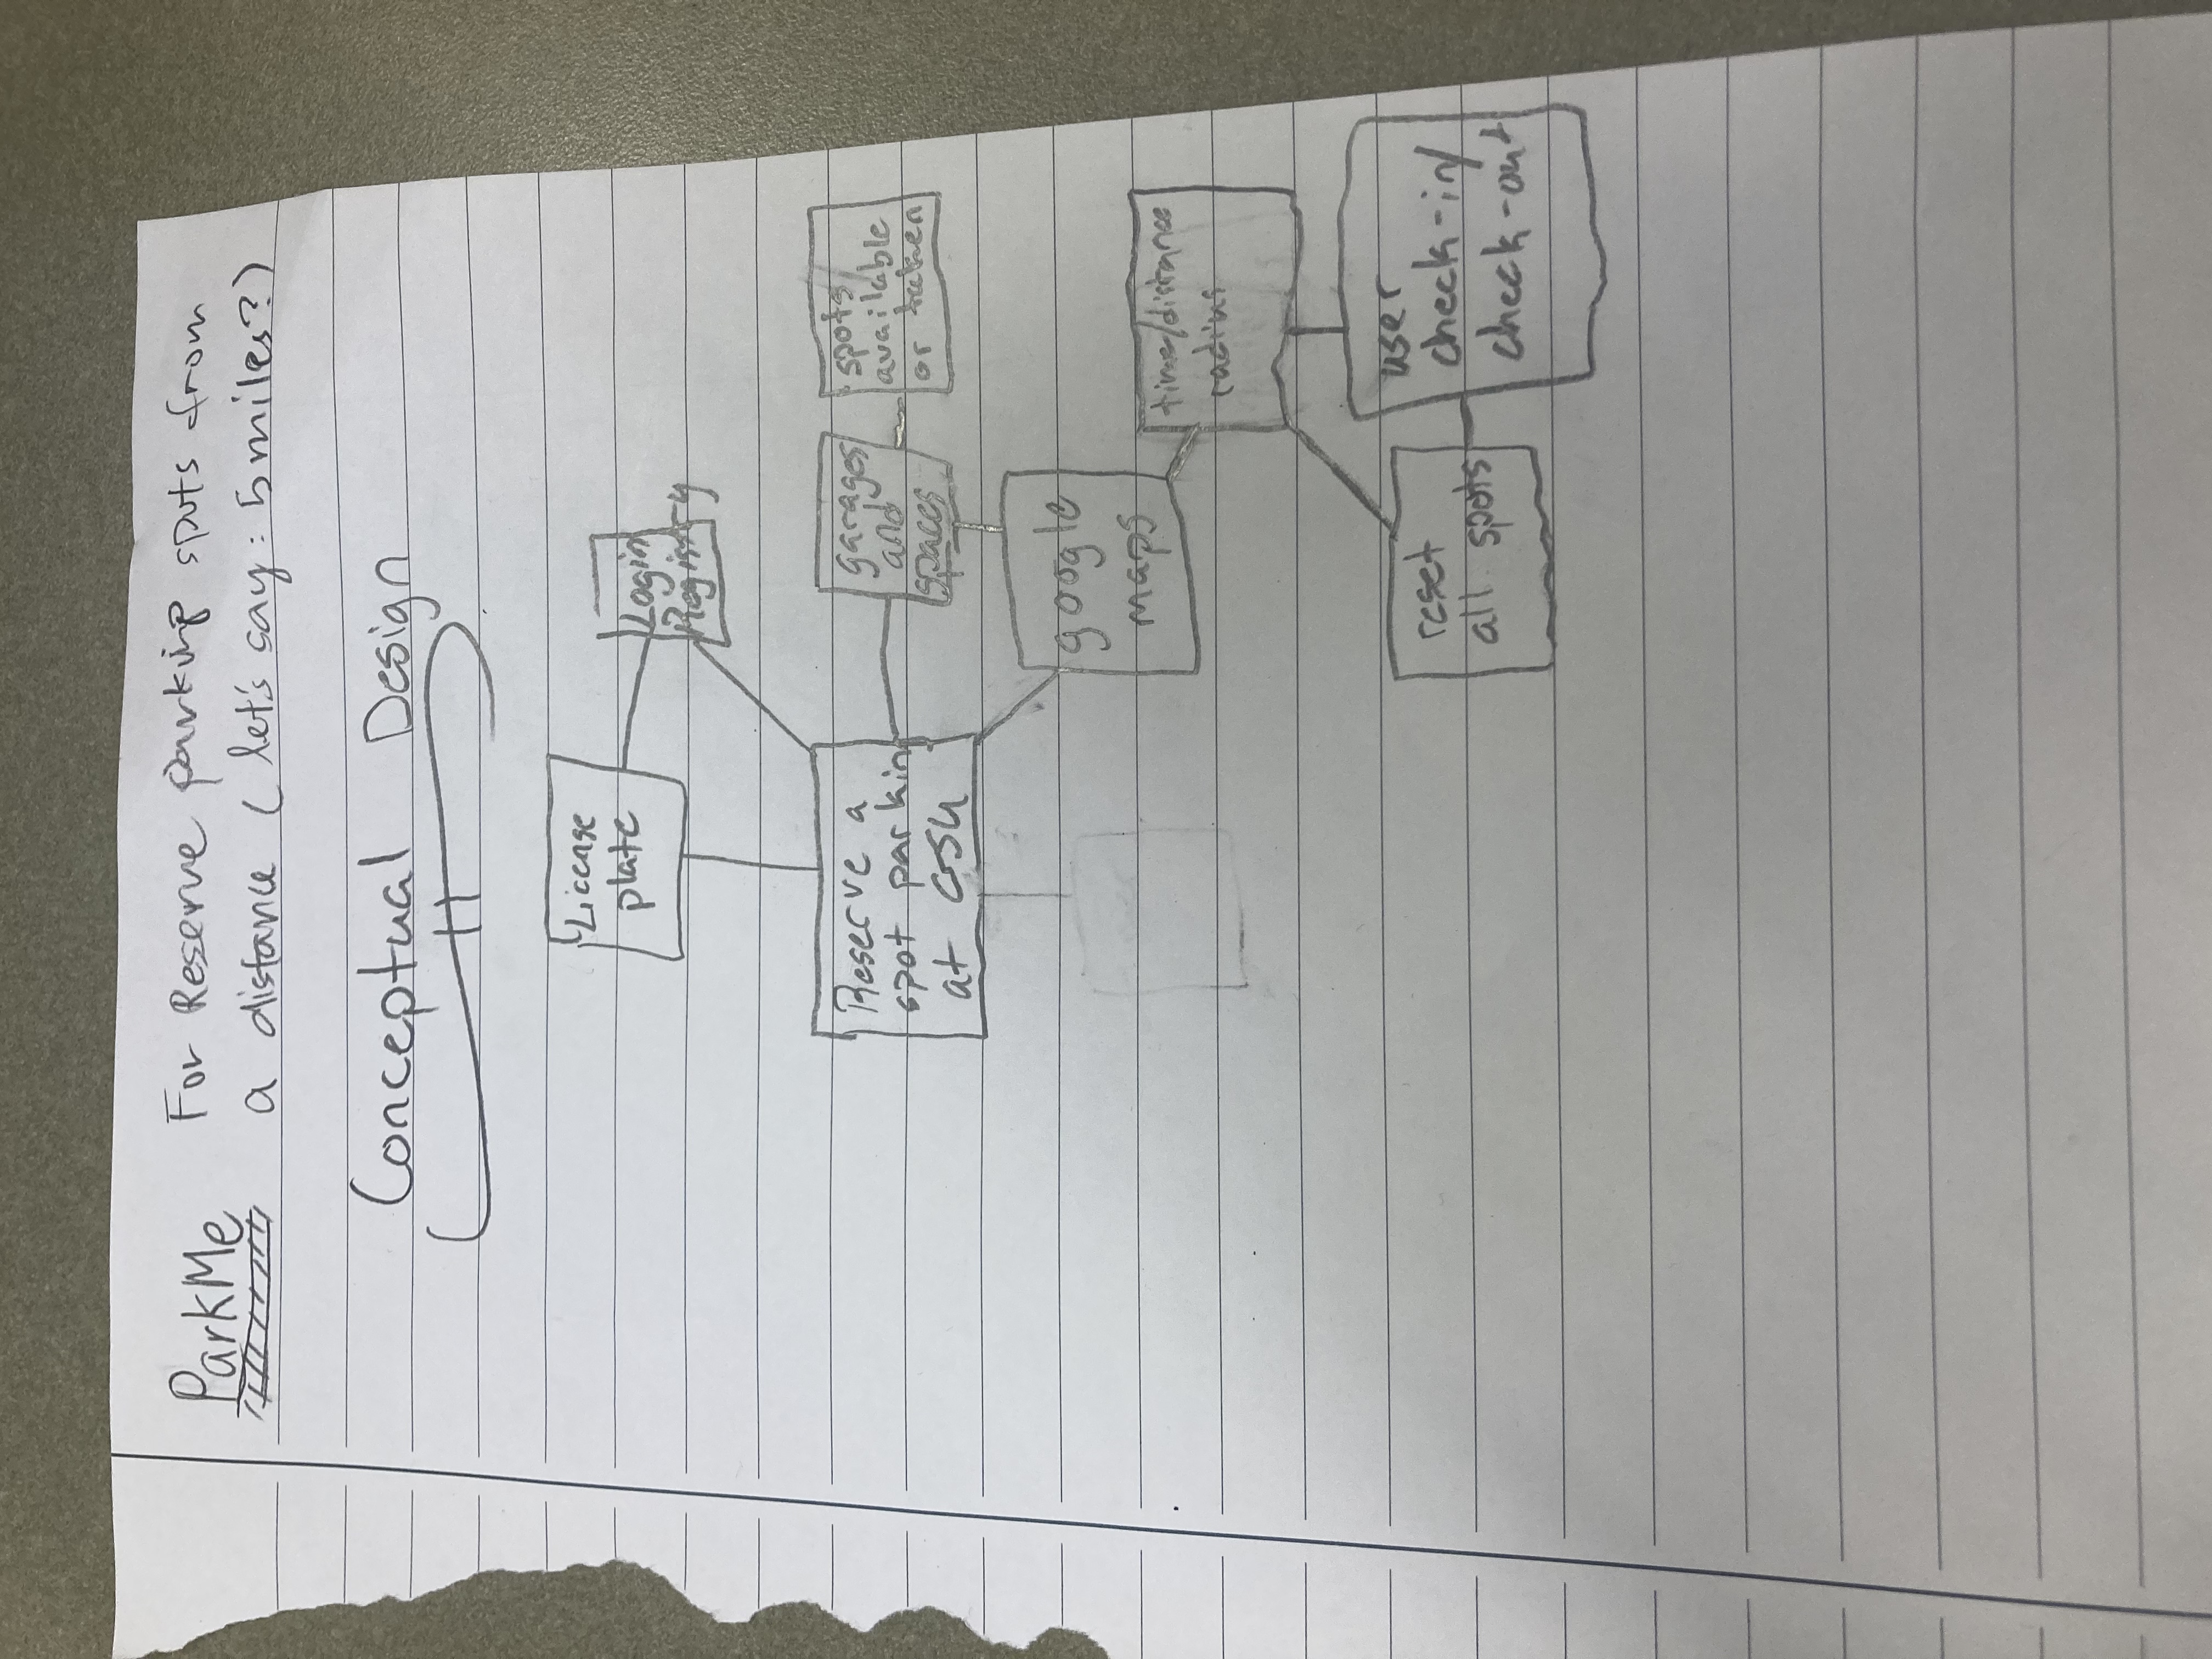 ParkMe
For Reserve parking spots from
a distance (let's say: 5 miles?)
Conceptual Design
License
plate
Login
Registry
Reserve a
spot parkin
at GSU
garages
and
spaces
spots
available
or taken
google
maps
time/distance
radius
reset
all spots
user
check-in/
check-out